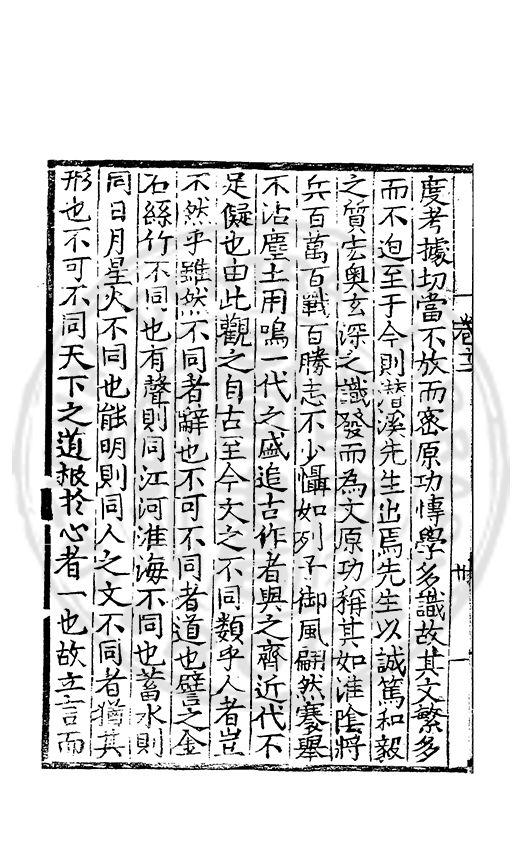 度考據切當不放而密原功慱學多識故其文繁多
而不迫至于今則潛溪先生出焉先生以誠篤和毅
之質宏奥玄深之識發而為文原功稱其如淮陰將
兵百萬百戰百勝志不少懾如列子御風翩然褰舉
不沾塵土用鳴一代之盛追古作者與之齊近代不
足儗也由此觀之自古至今文之不同類乎人者豈
不然乎雖然不同者辭也不可不同者道也譬之金
石絲竹不同也有聲則同江河淮海不同也蓄水則
同日月星火不同也能明則同人之文不同者猶其
形也不可不同天下之道根於心者一也故立言而